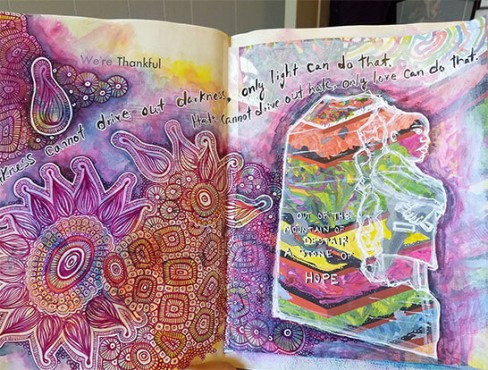 We're Thankful
kness cannot drive out darkness, only light can do that.
Hate cannot drive out hate, only love can do that.
OUT OF THE
MOUNTAIN OF
DESPAIR
A STONE OF
HOPE